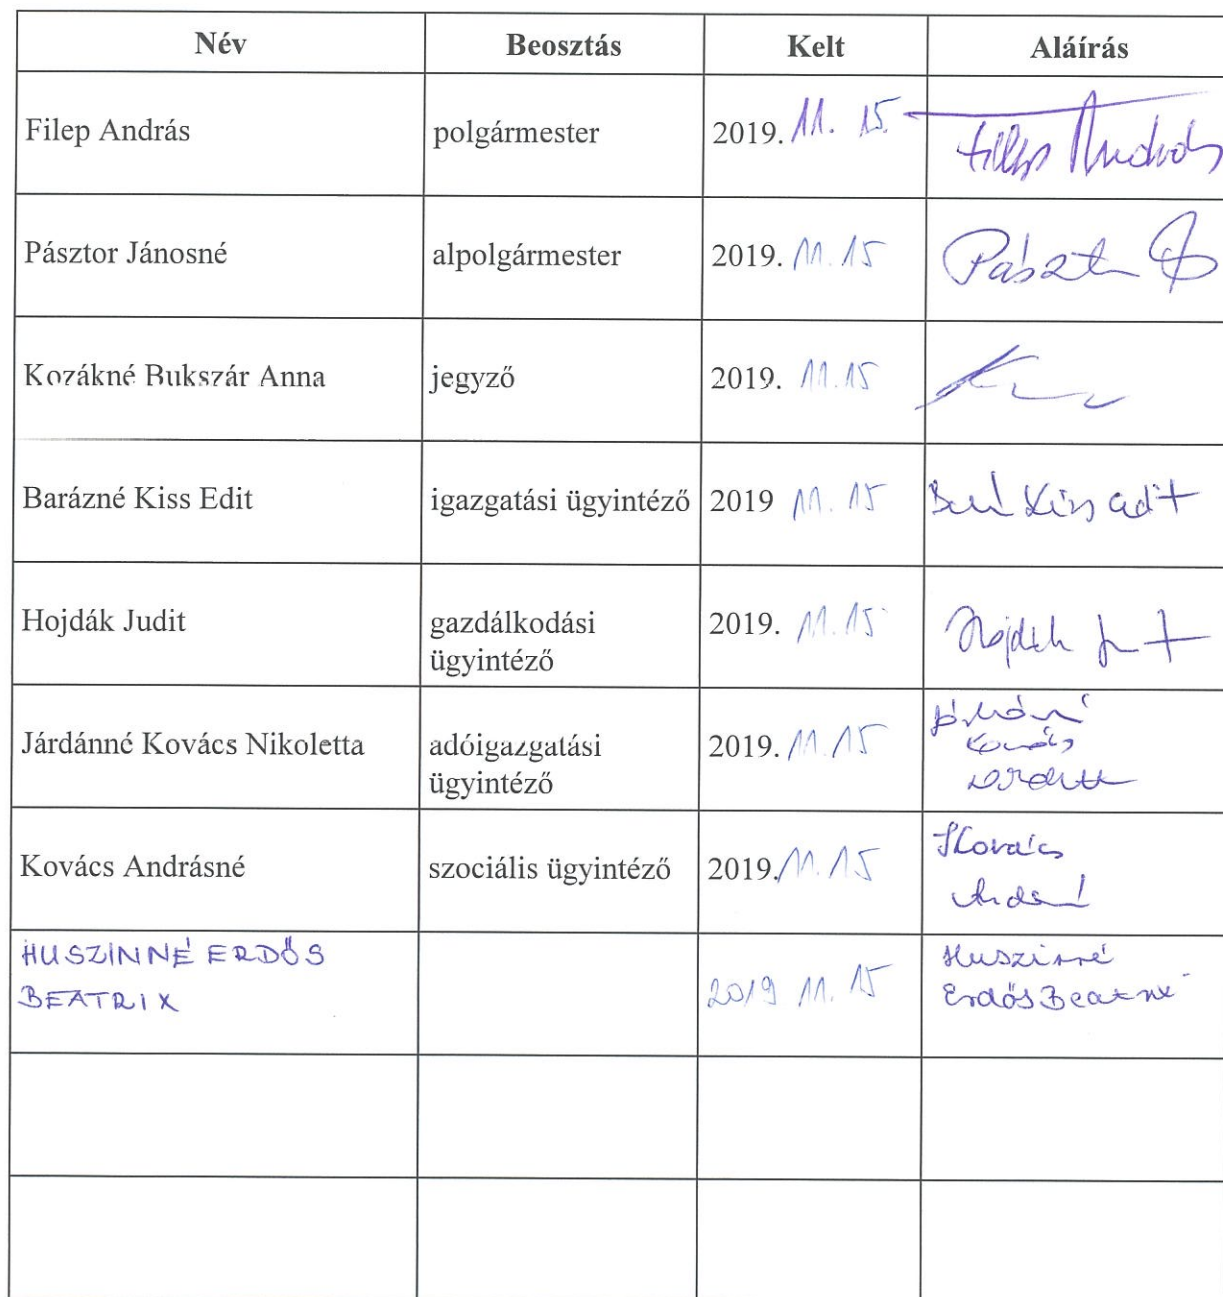 Név Beosztás Kelt Aláírás
Filep András polgármester 2019. 11. 15. Filep András
Pásztor Jánosné alpolgármester 2019. 11.15 Pászt
Kozákné Bukszár Anna jegyző 2019. 11.15
Barázné Kiss Edit igazgatási ügyintéző 2019 11. 15 Kiss Edit
Hojdák Judit gazdálkodási 2019. 11.15 Hojdák
ügyintéző
Járdánné Kovács Nikoletta adóigazgatási 2019. 11.15 Kovács
ügyintéző
Kovács Andrásné szociális ügyintéző 2019. 11.15 Kovács
HUSZINNÉ ERDŐS 2019 11. 15 Huszinné
BEATRIX Erdős Beatrix